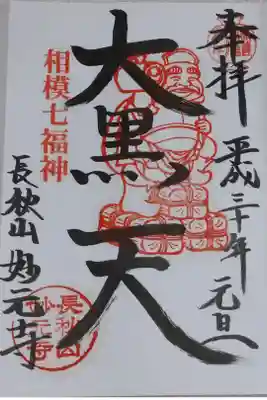 奉拝 平成三十年 元旦
大黒天
相模七福神
長秋山 妙元寺
長秋山
妙元寺